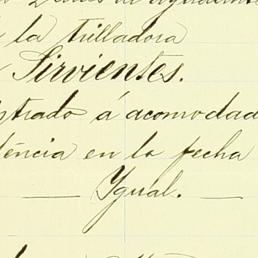 la trilladora
Sirvientes.
strado á acomodad
dencia en la fecha
— Ygual. —